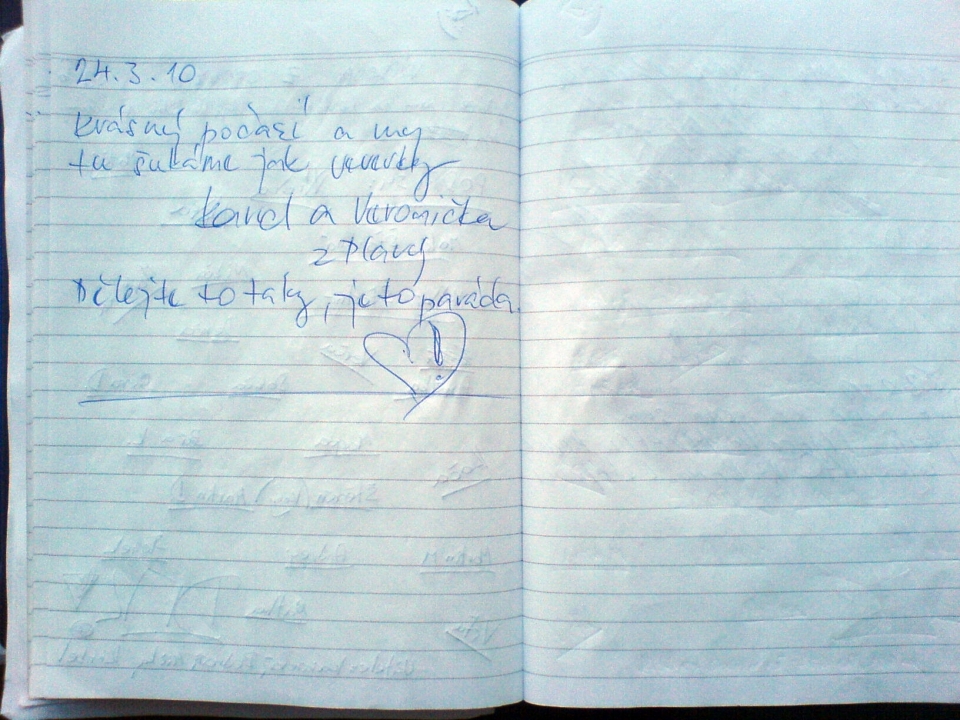 24.3.10
krásný počasí a my
tu šukáme jak veverky
Karel a Veronička
z Plavý
Dělejte to taky, je to paráda.
!